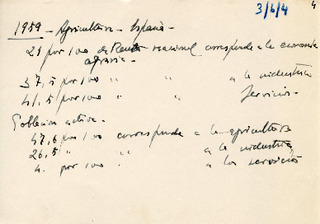 3/6/4
4
1959 - Agricultura - España -
21 por 100 de Renta nacional corresponde a la economia
agraria -
37,5 por 100 " " a la industria
41,5 por 100 " " Servicios -
Población activa -
47,6 por 100 corresponde a la agricultura
26,5 " " a la industria
por 100 " a los servicios